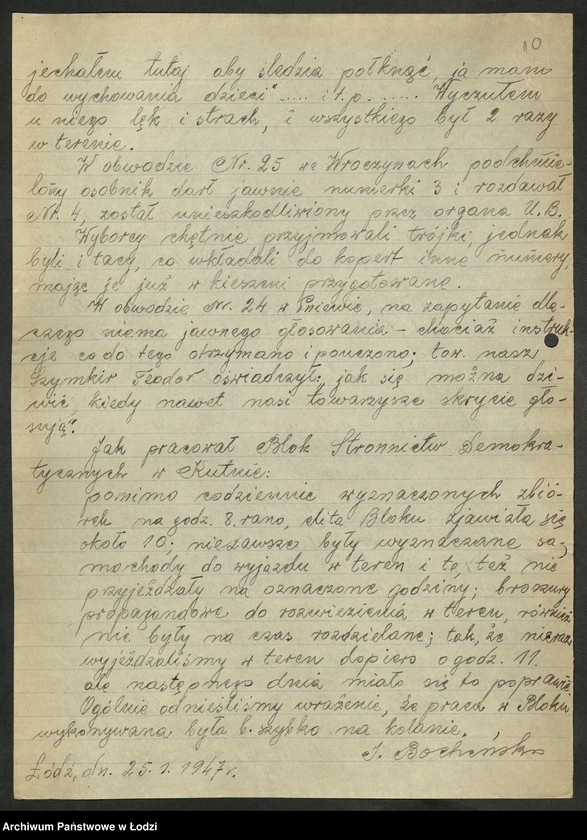 10
jechałem tutaj aby śledzia połknąć, ja mam
do wychowania dzieci"..... i t. p. ...... Wyczułem
u niego lęk i strach, i wszystkiego był 2 razy
w terenie.
W obwodzie Nr. 25 we Wroczynach podchmie-
lony osobnik darł jawnie numerki 3 i rozdawał
Nr. 4, został unieszkodliwiony przez organa U.B.
Wyborcy chętnie przyjmowali trójki, jednak
byli i tacy, co wkładali do kopert inne numery,
mając je już w kieszeni przygotowane.
W obwodzie Nr. 24 w Pniewie, na zapytanie dla-
czego niema jawnego głosowania – chociaż instruk-
cje co do tego otrzymano i pouczono; tow. nasz
Szymkir Teodor oświadczył: jak się można dzi-
wić, kiedy nawet nasi towarzysze skrycie gło-
sują".
Jak pracował Blok Stronnictw Demokra-
tycznych w Kutnie:
pomimo codziennie wyznaczonych zbió-
rek na godz. 8. rano, elita Bloku zjawiała się
około 10; niezawsze były wyznaczane sa-
mochody do wyjazdu w teren i te też nie
przyjeżdżały na oznaczone godziny; broszury
propagandowe do rozwiezienia w teren, również
nie były na czas rozdzielane; tak, że nieraz
wyjeżdżaliśmy w teren dopiero o godz. 11.
ale następnego dnia miało się to poprawić.
Ogólnie odnieśliśmy wrażenie, że praca w Bloku
wykonywana była b. szybko na kolanie.
J. Bocheńska
Łódź, dn. 25.1.1947 r.
Archiwum Państwowe w Łodzi